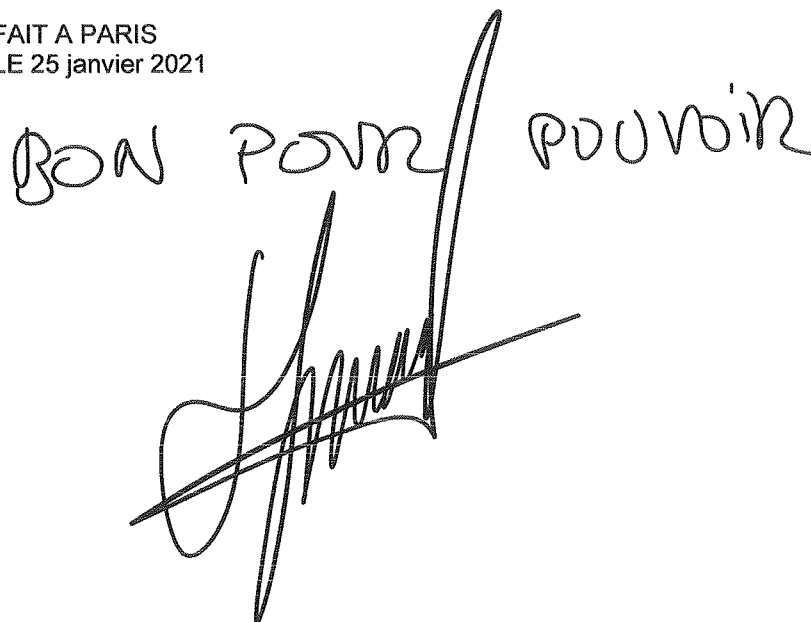 FAIT A PARIS
LE 25 janvier 2021
BON POUR POUVOIR